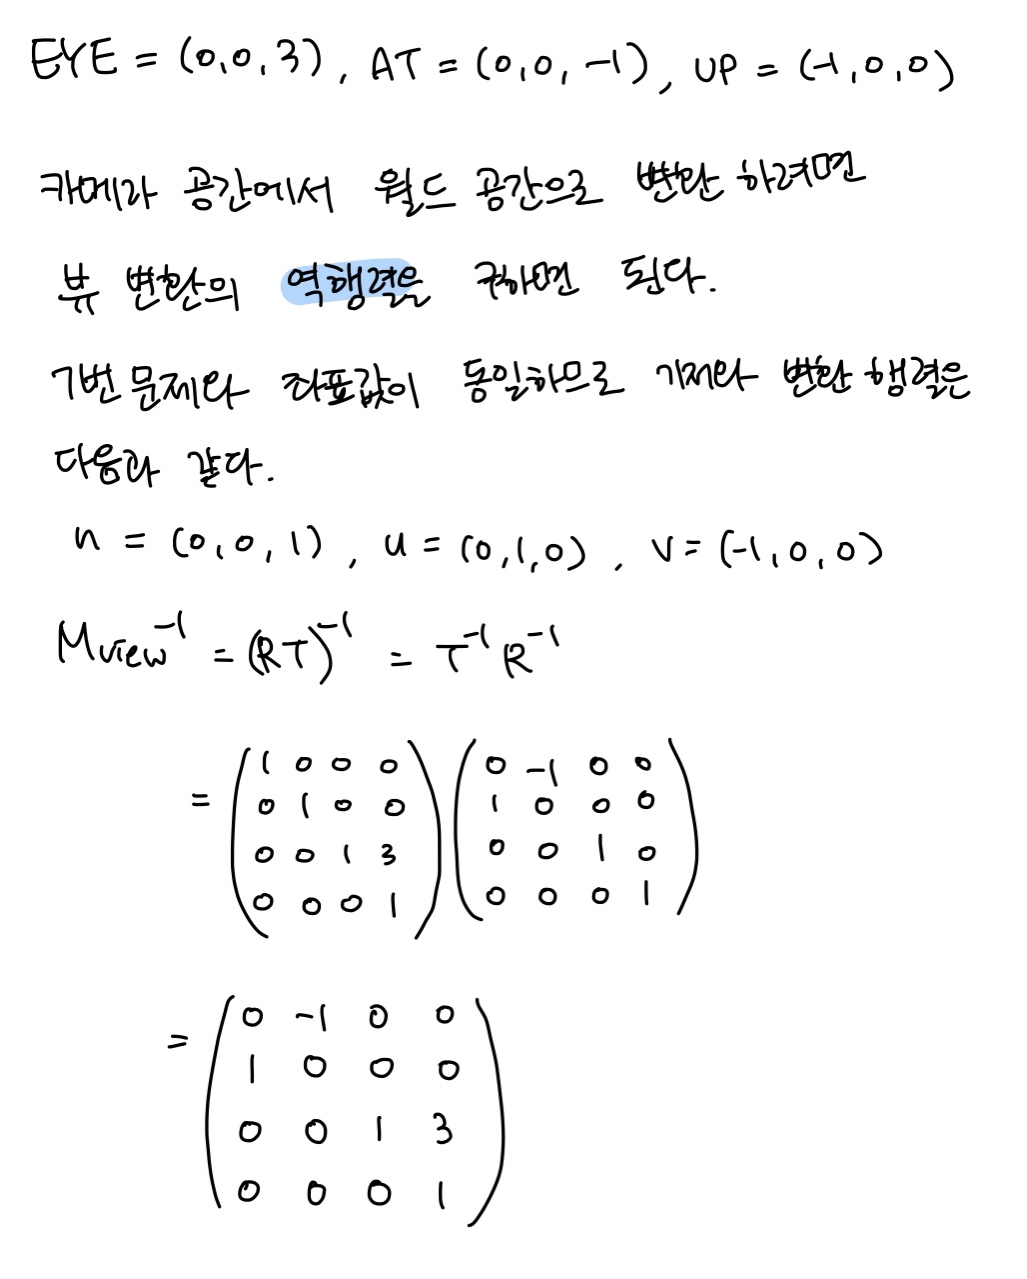 EYE = (0,0,3), AT = (0,0,-1), UP = (-1,0,0)
카메라 공간에서 월드 공간으로 변환 하려면
뷰 변환의 역행렬을 구하면 된다.
7번 문제와 좌표값이 동일하므로 기저와 변환 행렬은
다음과 같다.
n = (0,0,1), u = (0,1,0), v = (-1,0,0)
Mview⁻¹ = (RT)⁻¹ = T⁻¹ R⁻¹
= (1 0 0 0) (0 -1 0 0)
(0 1 0 0) (1 0 0 0)
(0 0 1 3) (0 0 1 0)
(0 0 0 1) (0 0 0 1)
= (0 -1 0 0)
(1 0 0 0)
(0 0 1 3)
(0 0 0 1)